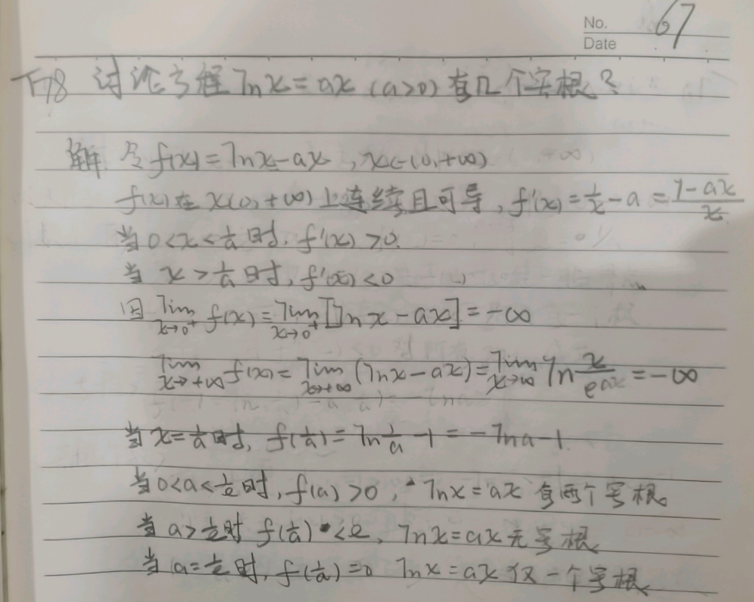 No. 67
Date
下78 讨论方程 lnx = ax (a>0) 有几个实根?
解 令 f(x) = lnx - ax, x∈(0,+∞)
f(x)在 x(0,+∞) 上连续且可导, f'(x) = 1/x - a = (1-ax)/x
当 0<x<1/a 时, f'(x) >0.
当 x>1/a 时, f'(x) <0
因 lim_{x→0⁺} f(x) = lim_{x→0⁺} [lnx - ax] = -∞
lim_{x→+∞} f(x) = lim_{x→+∞} (lnx - ax) = lim_{x→∞} ln x/e^{ax} = -∞
当 x=1/a 时, f(1/a) = ln 1/a - 1 = -lna - 1
当 0<a<1/e 时, f(a) >0, lnx = ax 有两个实根
当 a>1/e 时 f(1/a) <0, lnx = ax 无实根
当 a=1/e 时, f(1/a) = 0 lnx = ax 仅一个实根